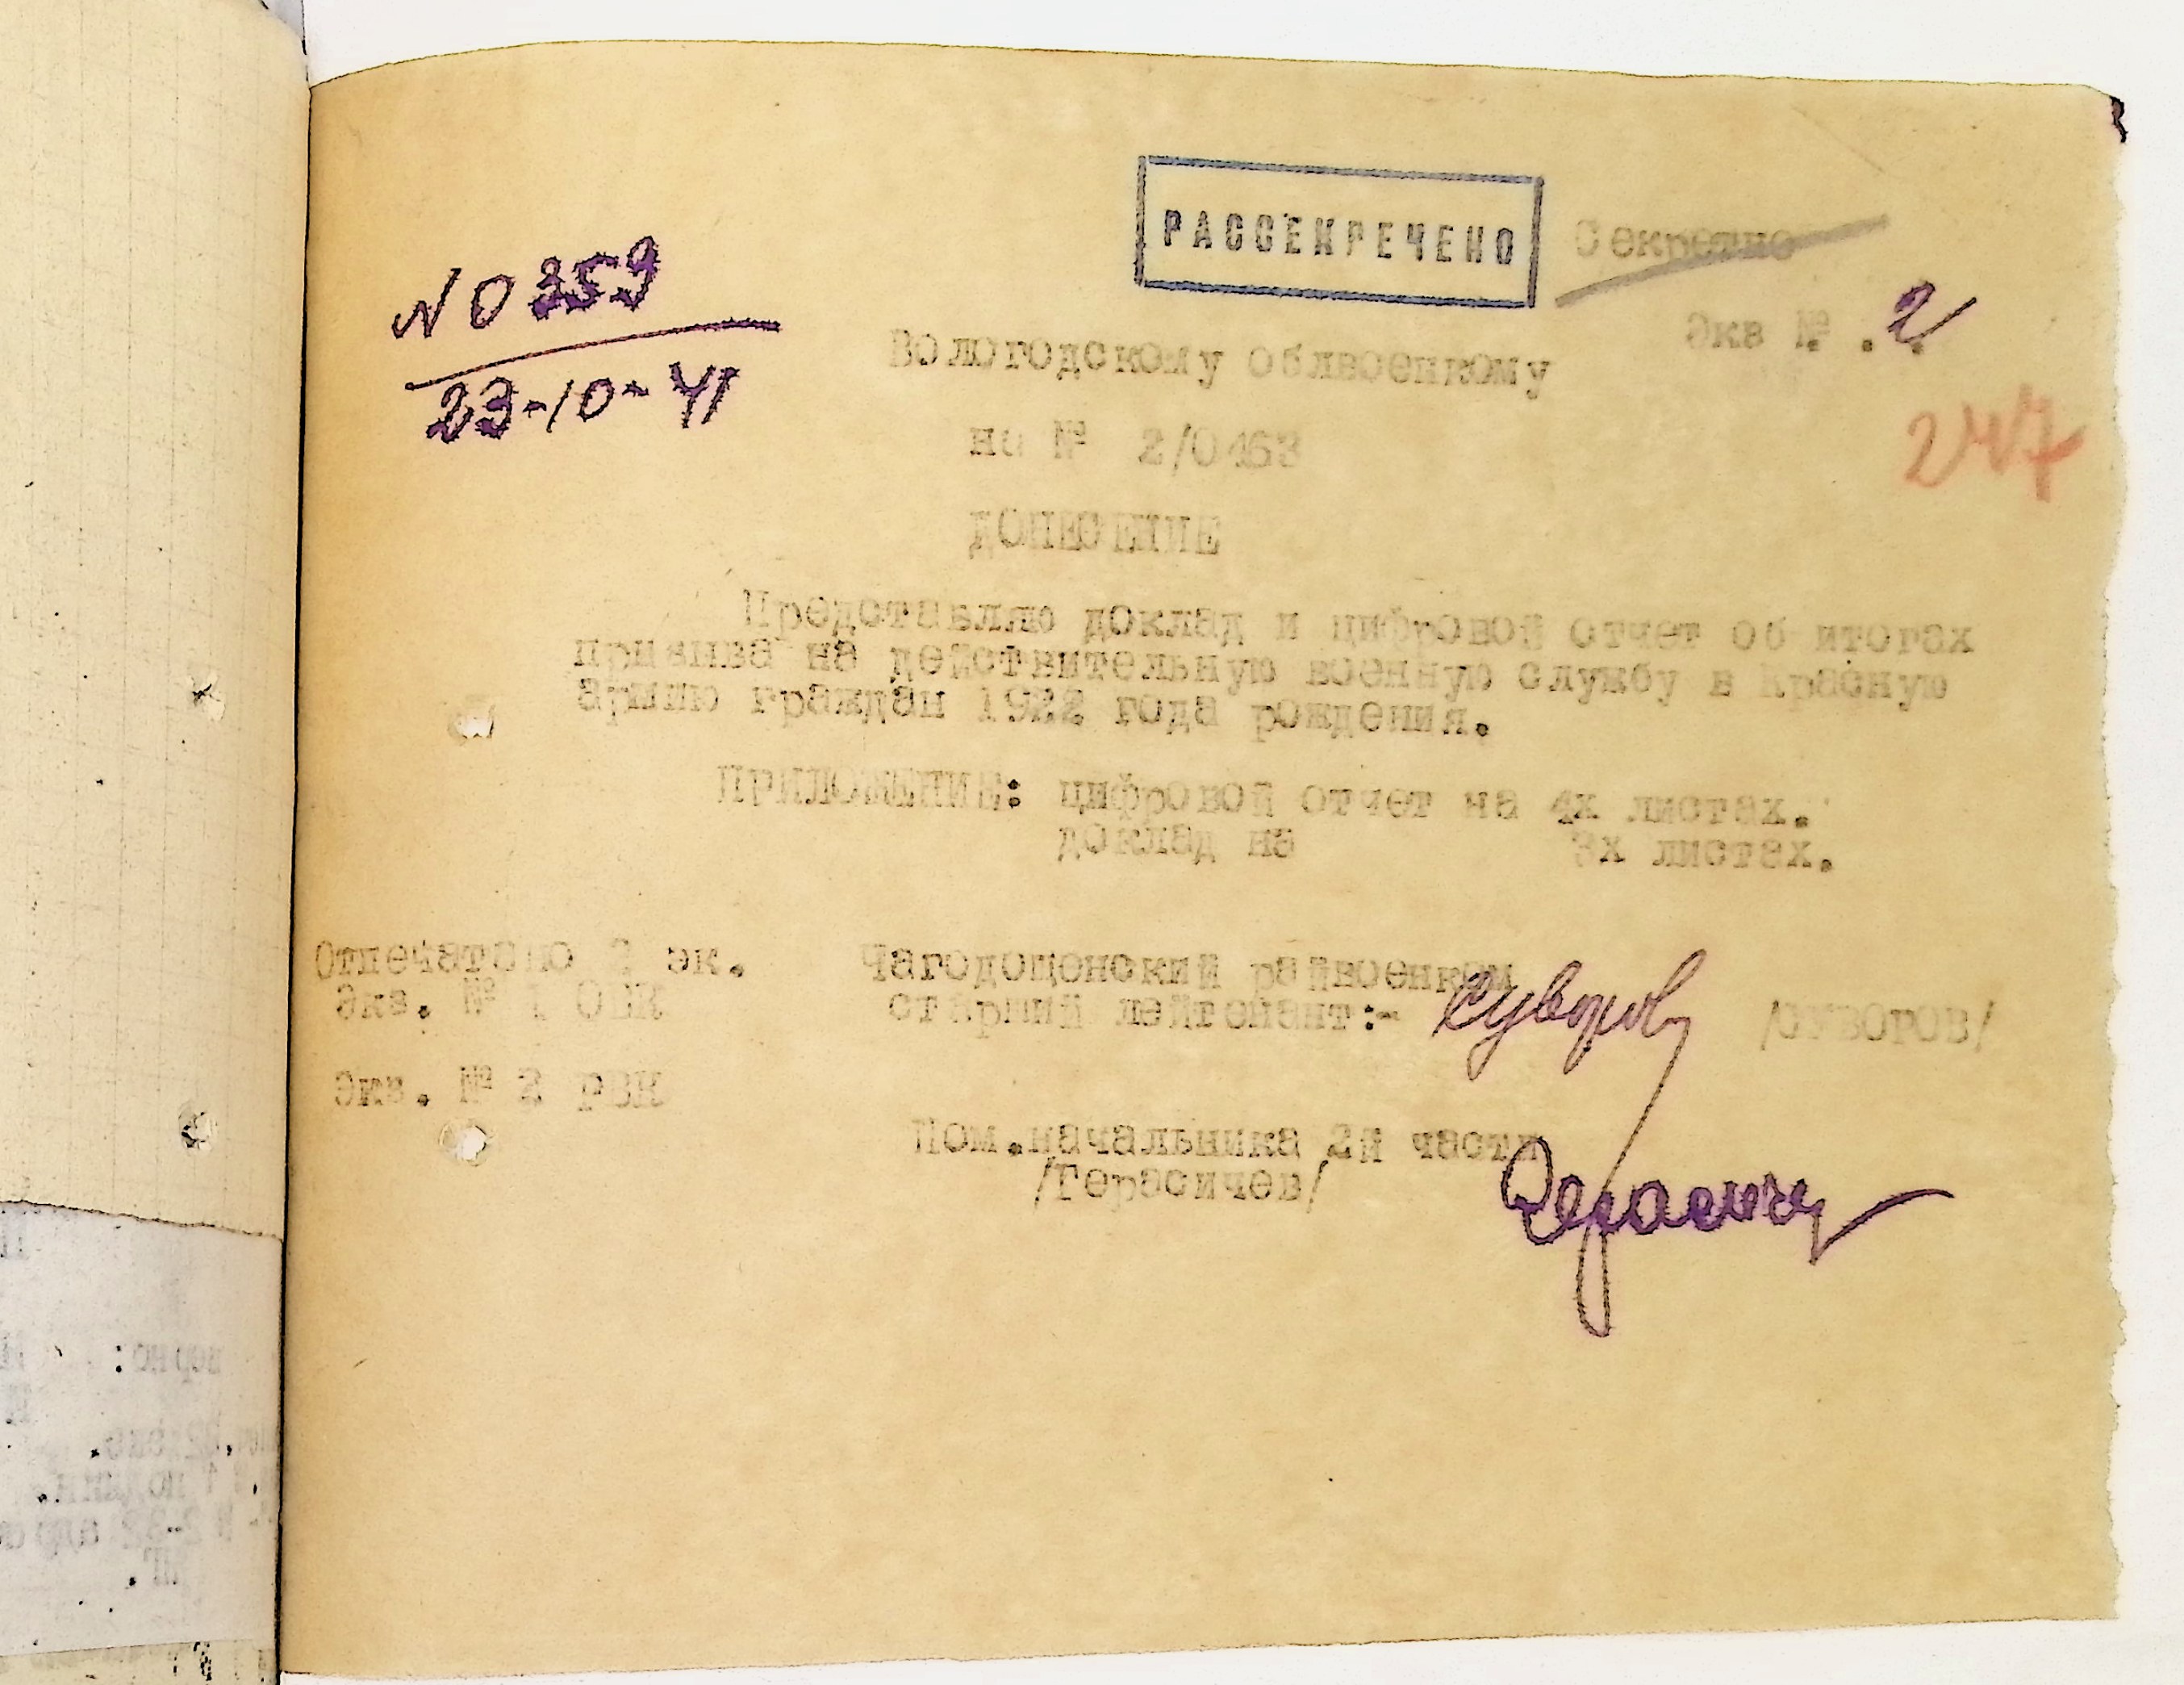 РАССЕКРЕЧЕНО
Секретно
Экз № . 2
№ 0359
23-10-41
247
Вологодскому облвоенкому
на № 2/0463
ДОНЕСЕНИЕ
Представляю доклад и цифровой отчет об итогах
призыва на действительную военную службу в Красную
армию граждан 1922 года рождения.
ПРИЛОЖЕНИЕ: цифровой отчет на 4х листах.
доклад на 3х листах.
Отпечатано 2 эк.
Экз. № 1 ОВК
Экз. № 2 РВК
Чагодощенский райвоенком
старший лейтенант:- Суворов /СУВОРОВ/
Пом.начальника 2й части
/Герасичев/ Герасичев
верно: